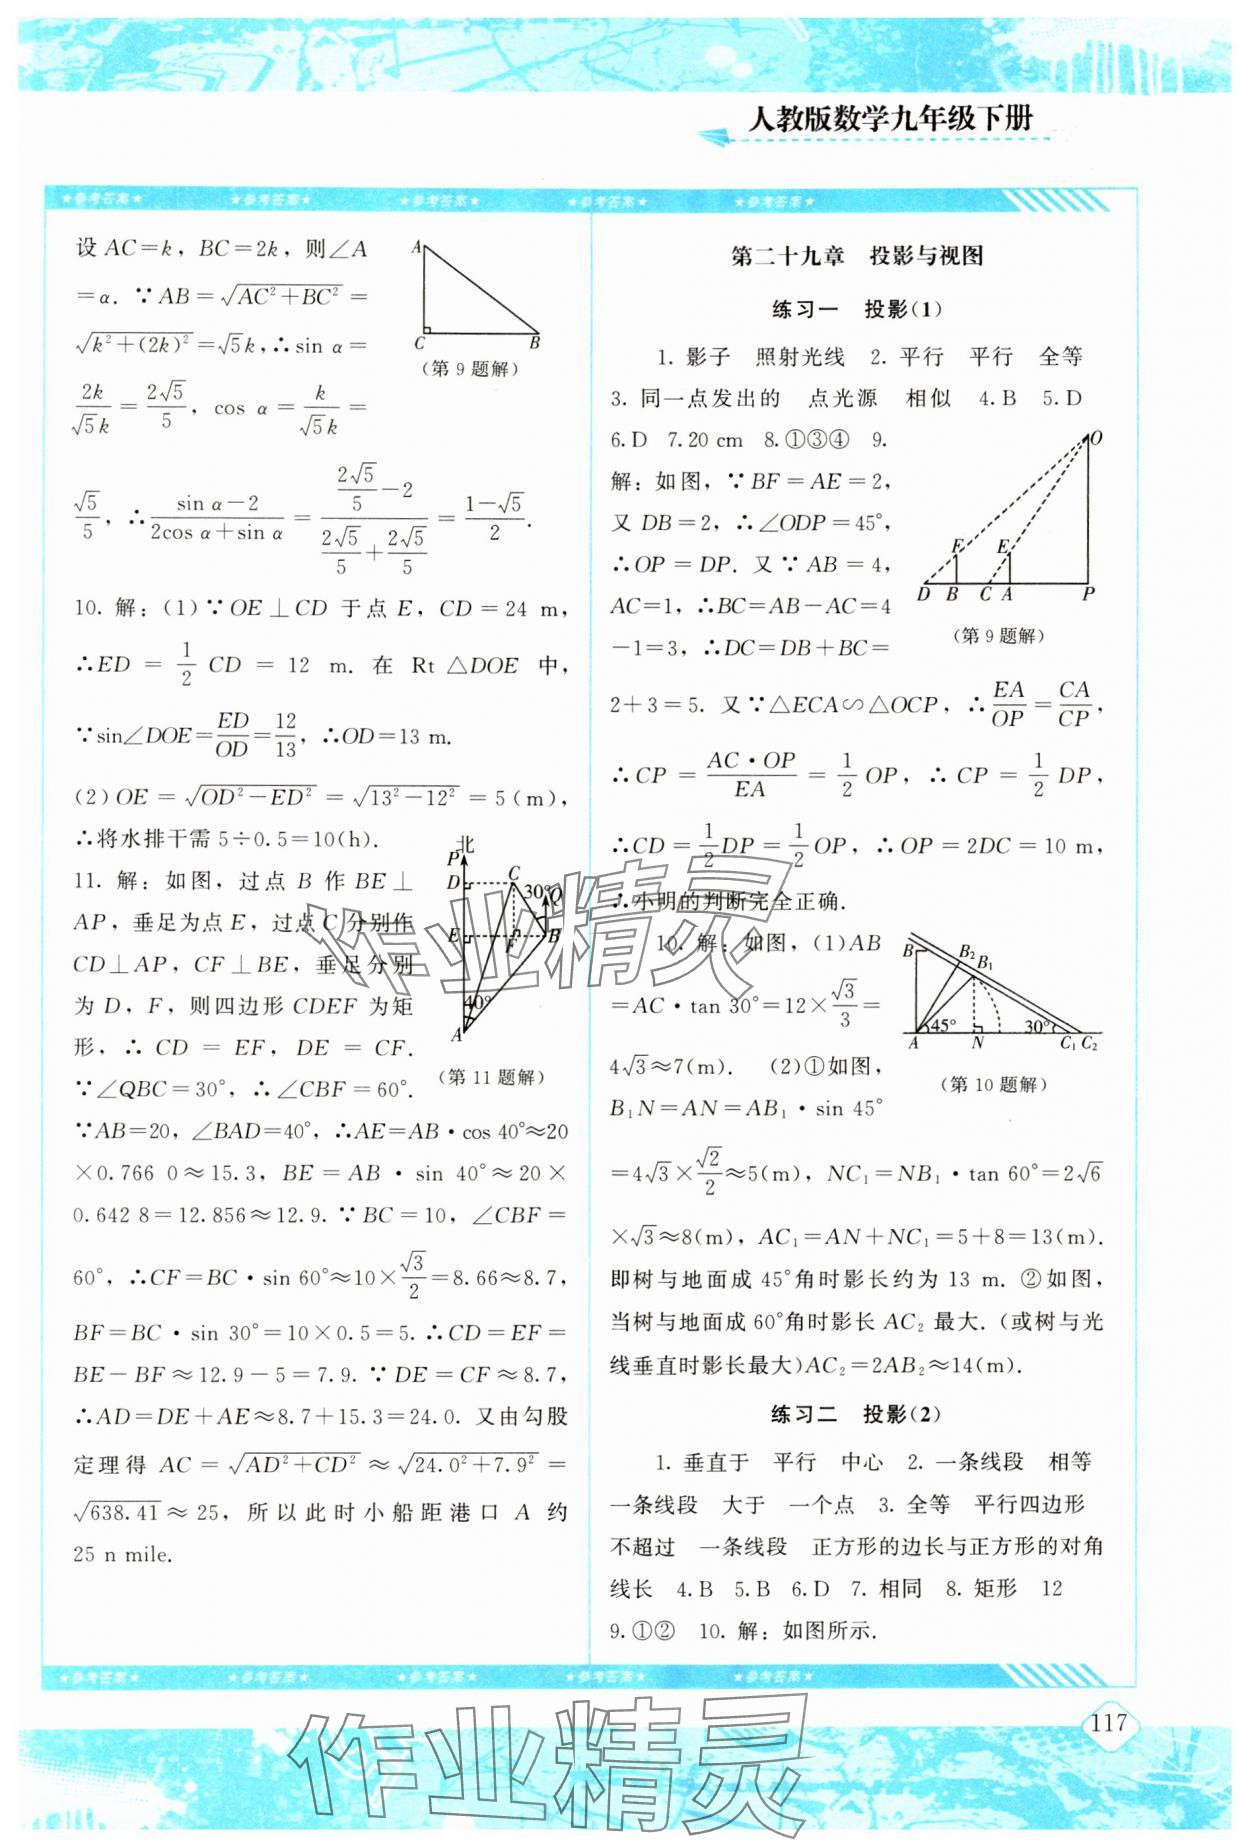 人教版数学九年级下册
★参考答案★ ★参考答案★ ★参考答案★ ★参考答案★ ★参考答案★
设 AC=k，BC=2k，则∠A
=α. ∵ AB=√(AC²+BC²)=
√(k²+(2k)²)=√5k,∴sin α=
2k/√5k=2√5/5，cos α=k/√5k=
√5/5，∴(sin α-2)/(2cos α+sin α)=(2√5/5-2)/(2√5/5+2√5/5)=(1-√5)/2.
A
C
B
(第9题解)
10. 解：(1)∵OE⊥CD 于点 E，CD=24 m，
∴ED=1/2 CD=12 m. 在 Rt△DOE 中，
∵sin∠DOE=ED/OD=12/13，∴OD=13 m.
(2)OE=√(OD²-ED²)=√(13²-12²)=5(m)，
∴将水排干需 5÷0.5=10(h).
11. 解：如图，过点 B 作 BE⊥
AP，垂足为点 E，过点 C 分别作
CD⊥AP，CF⊥BE，垂足分别
为 D，F，则四边形 CDEF 为矩
形，∴ CD=EF，DE=CF.
∵∠QBC=30°，∴∠CBF=60°.
北
P
D
C
30°
Q
E
F
B
40°
A
(第11题解)
∵AB=20，∠BAD=40°，∴AE=AB·cos 40°≈20
×0.766 0≈15.3，BE=AB·sin 40°≈20×
0.642 8=12.856≈12.9. ∵BC=10，∠CBF=
60°，∴CF=BC·sin 60°≈10×√3/2=8.66≈8.7，
BF=BC·sin 30°=10×0.5=5. ∴CD=EF=
BE-BF≈12.9-5=7.9. ∵DE=CF≈8.7，
∴AD=DE+AE≈8.7+15.3=24.0. 又由勾股
定理得 AC=√(AD²+CD²)≈√(24.0²+7.9²)=
√638.41≈25，所以此时小船距港口 A 约
25 n mile.
第二十九章 投影与视图
练习一 投影(1)
1. 影子 照射光线 2. 平行 平行 全等
3. 同一点发出的 点光源 相似 4.B 5.D
6.D 7.20 cm 8.①③④ 9.
解：如图，∵BF=AE=2，
又 DB=2，∴∠ODP=45°，
∴OP=DP. 又∵AB=4，
AC=1，∴BC=AB-AC=4
-1=3，∴DC=DB+BC=
O
F
E
D
B
C
A
P
(第9题解)
2+3=5. 又∵△ECA∽△OCP，∴EA/OP=CA/CP，
∴CP=AC·OP/EA=1/2 OP，∴CP=1/2 DP，
∴CD=1/2 DP=1/2 OP，∴OP=2DC=10 m，
∴小明的判断完全正确.
10. 解：如图，(1)AB
=AC·tan 30°=12×√3/3=
4√3≈7(m). (2)①如图，
B₁N=AN=AB₁·sin 45°
B
B₂
B₁
45°
30°
A
N
C₁
C₂
(第10题解)
=4√3×√2/2≈5(m)，NC₁=NB₁·tan 60°=2√6
×√3≈8(m)，AC₁=AN+NC₁=5+8=13(m).
即树与地面成 45°角时影长约为 13 m. ②如图，
当树与地面成 60°角时影长 AC₂ 最大.(或树与光
线垂直时影长最大)AC₂=2AB₂≈14(m).
练习二 投影(2)
1. 垂直于 平行 中心 2. 一条线段 相等
一条线段 大于 一个点 3. 全等 平行四边形
不超过 一条线段 正方形的边长与正方形的对角
线长 4.B 5.B 6.D 7. 相同 8. 矩形 12
9.①② 10. 解：如图所示.
★参考答案★ ★参考答案★ ★参考答案★ ★参考答案★ ★参考答案★
117
作业精灵
作业精灵